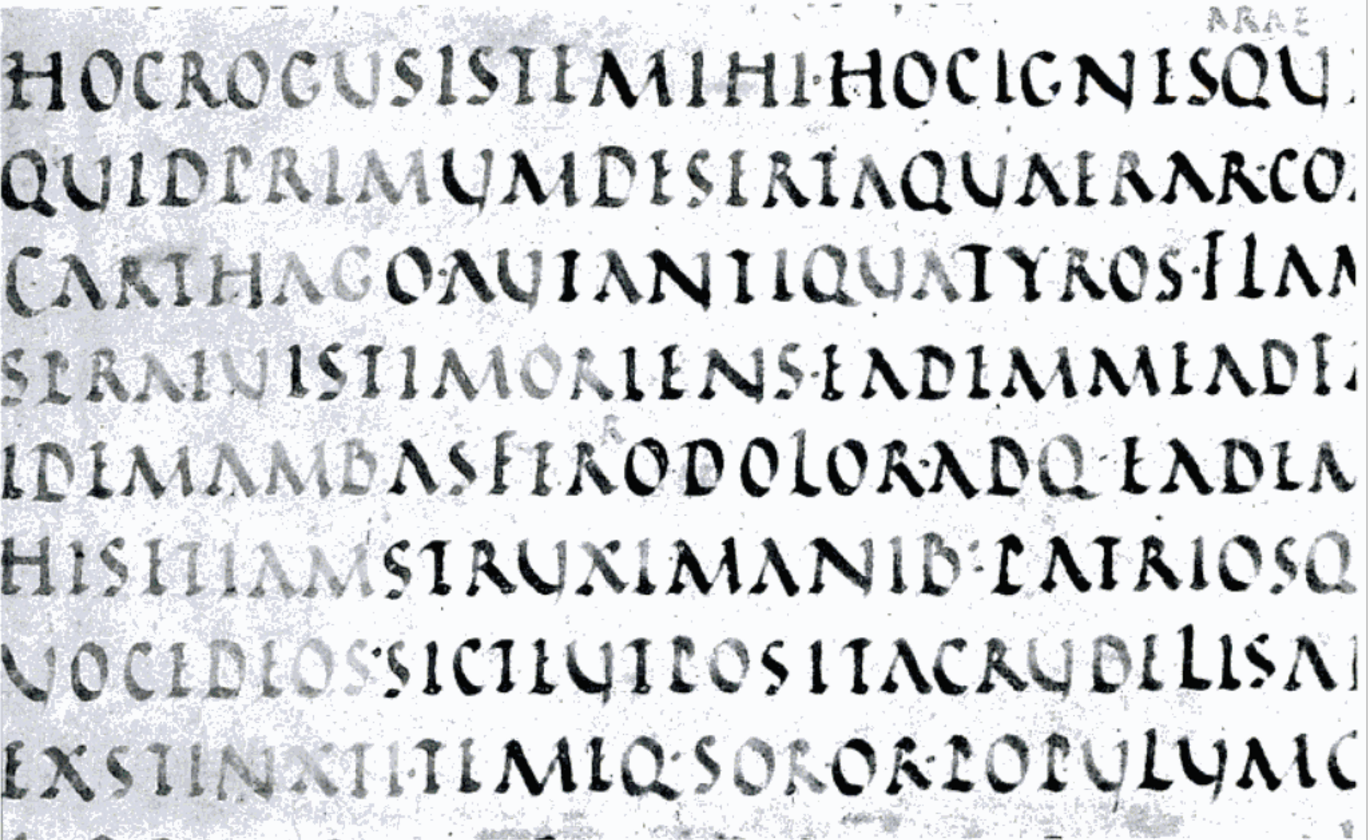 ARAE
HOCROGUSISTEMIHI·HOCIGNESQU
QUIDPRIMUMDESERTAQUAERAR·CO
CARTHAGO·AUTANTIQUATYROS·FLAM
SPRAEUISTIMORIENS·EADEMMEADF
IDEMAMBASFERRODOLOR·ADQ·EADEM
HISETIAMSTRUXIMANIB:PATRIOSQ
VOCEDEOS·SICTEUTPOSITACRUDELISA
EXSTINXTI·TEMEQ·SOROR·POPULUMC